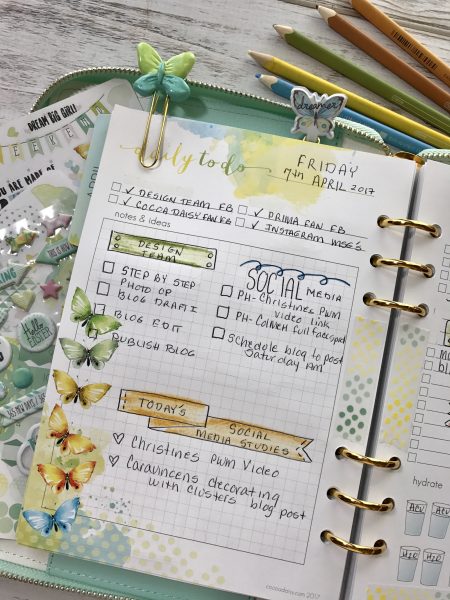 daily to do
FRIDAY
7th APRIL 2017
✓ DESIGN TEAM FB
✓ PRIMA FAN FB
✓ COCOA DAISY FAN FB
✓ INSTAGRAM MSGES
notes & ideas
DESIGN
TEAM
STEP BY STEP
PHOTO OP
BLOG DRAFT 1
BLOG EDIT
PUBLISH BLOG
SOCIAL MEDIA
PH-Christines PWM
video link
PH- full face spot
Schedule blog to post
Saturday AM
TODAY'S
SOCIAL
MEDIA STUDIES
♡ Christines PWM Video
♡ decorating
with clusters blog post
cocoadaisy.com 2017
hydrate
H2O
H2O
dreamer
DREAM BIG GIRL!
WEEKEND
YOU ARE MADE OF
APRIL
Hello